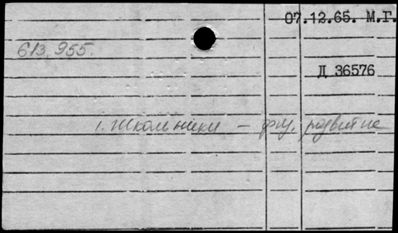 07.12.65. М.Г.
613.955.
Д 36576
1. Школьники — физ. развитие